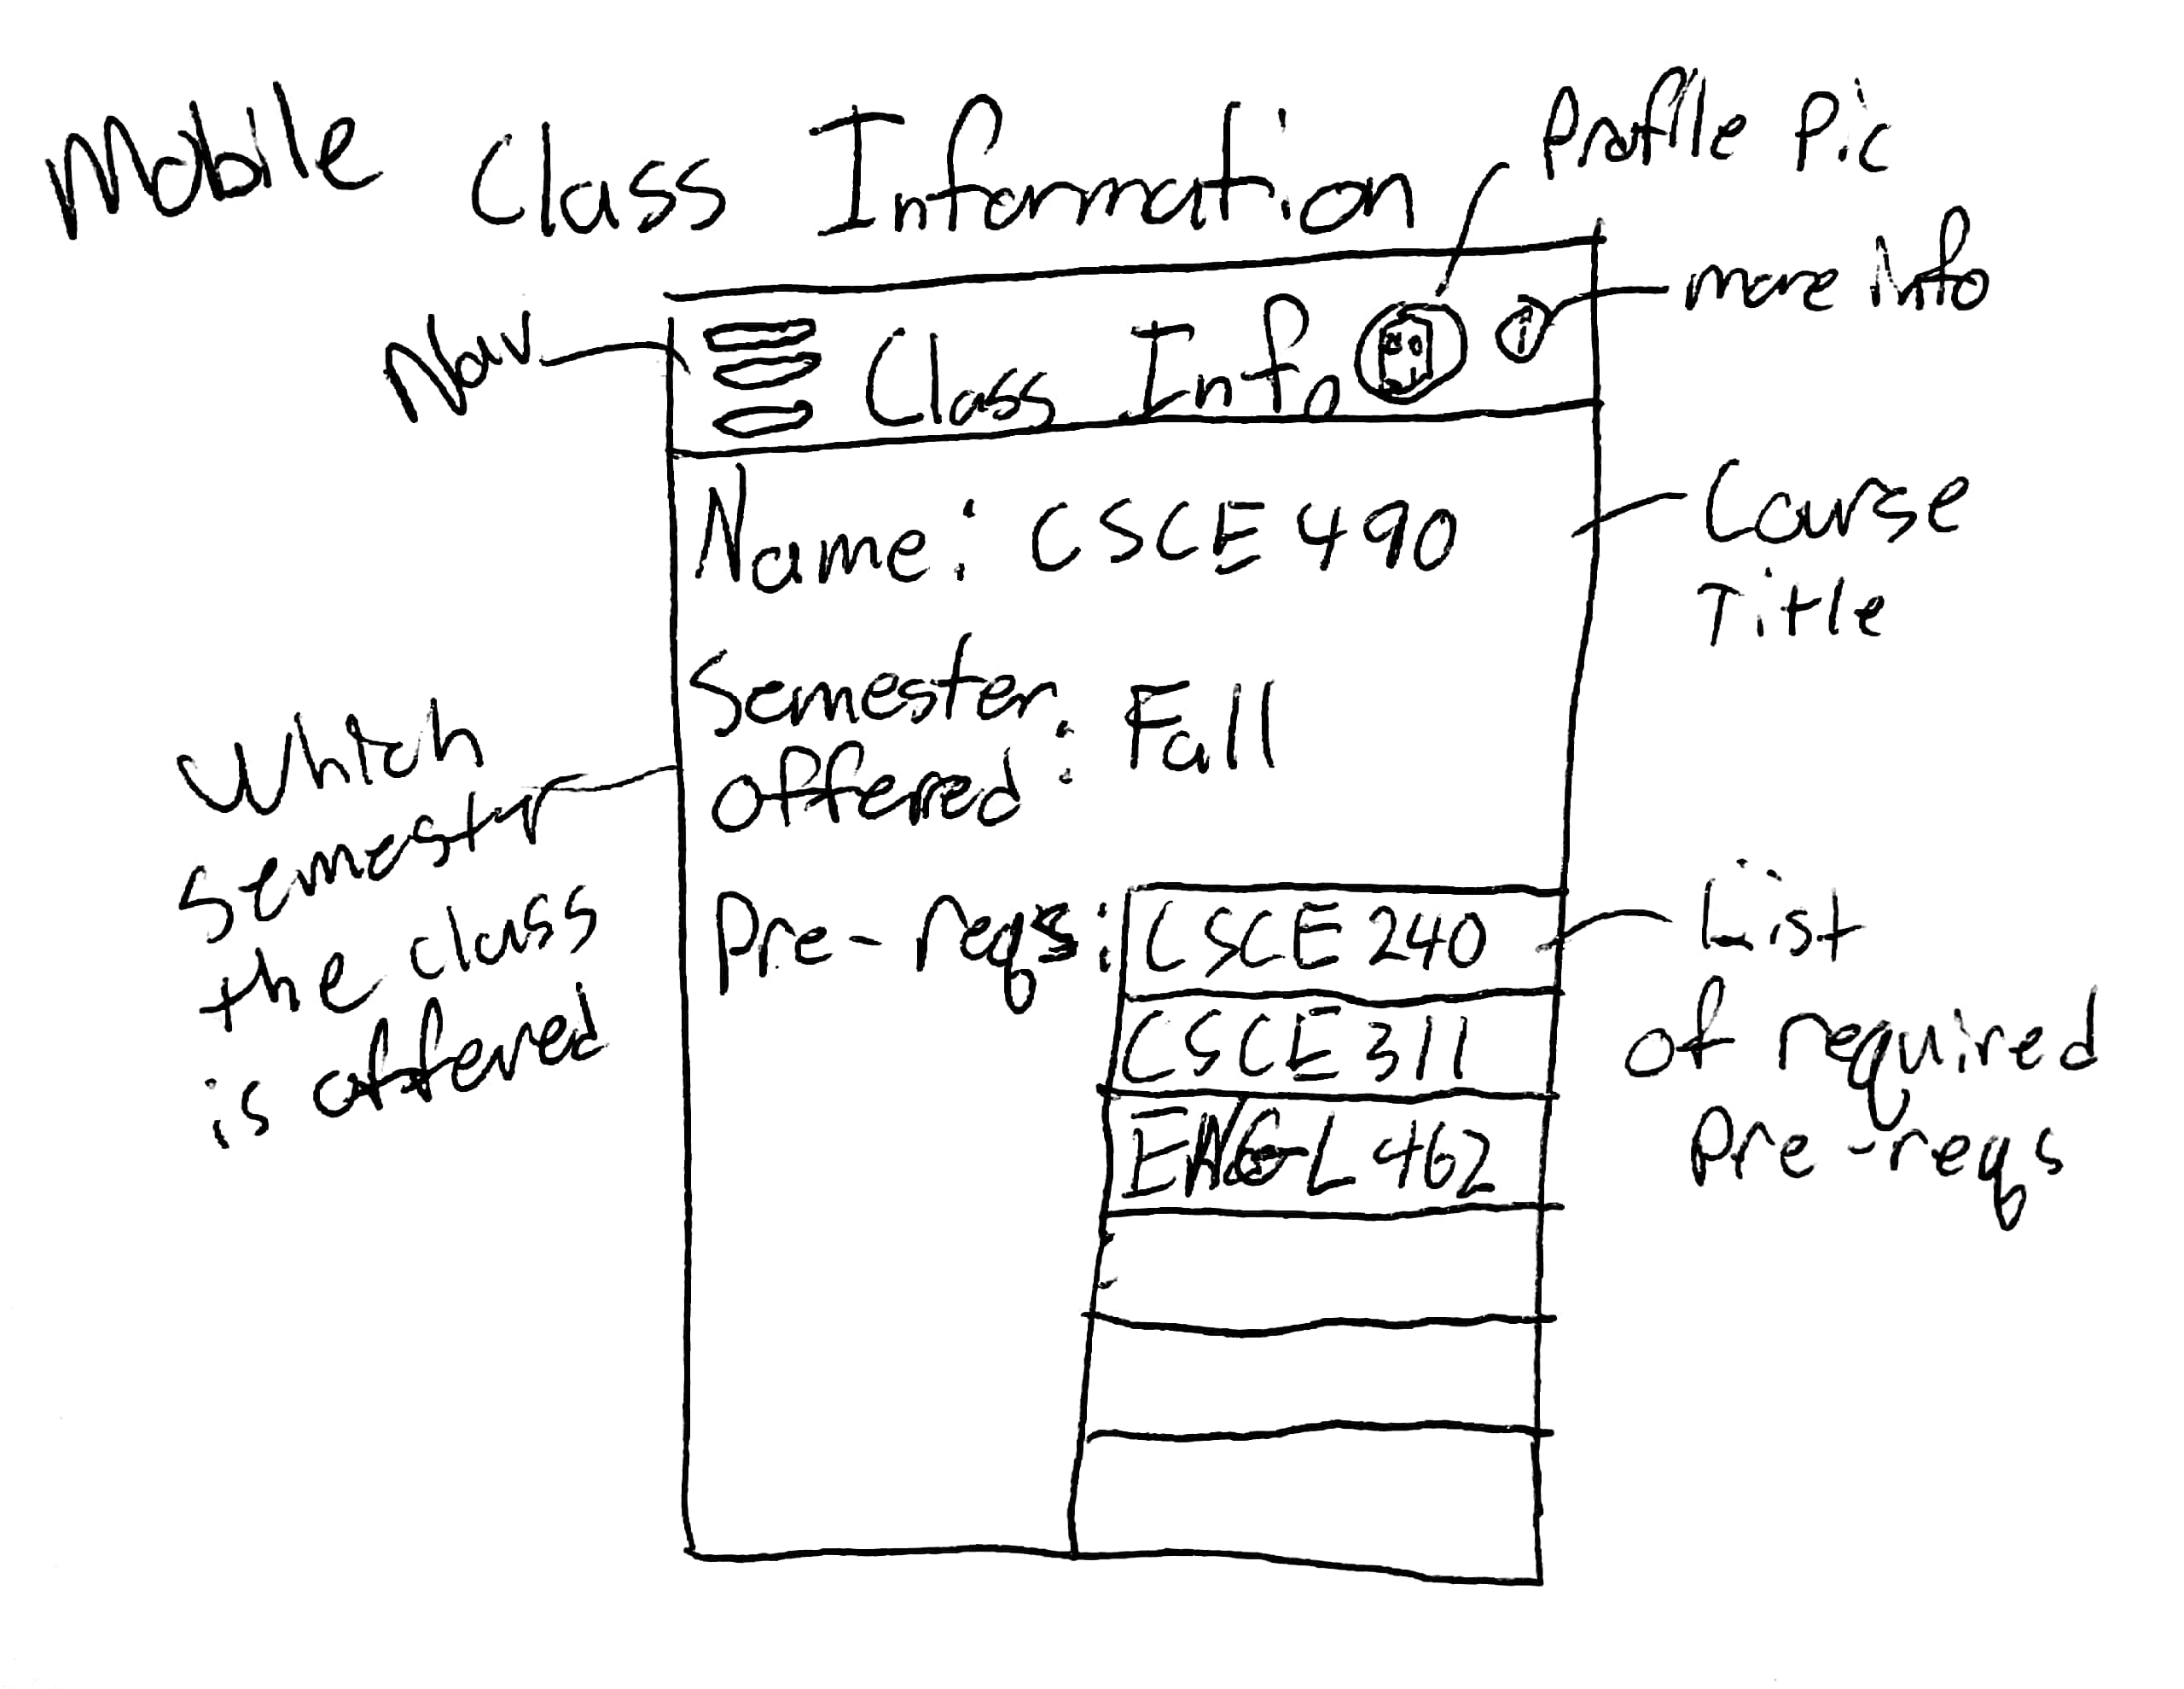 Mobile Class Information
Profile Pic
more info
Nav
Class Info
i
Name: CSCE 490
Course
Title
Semester
Offered: Fall
Which
semester
the class
is offered
Pre-reqs:
CSCE 240
CSCE 311
ENGL 462
List
of required
Pre-reqs